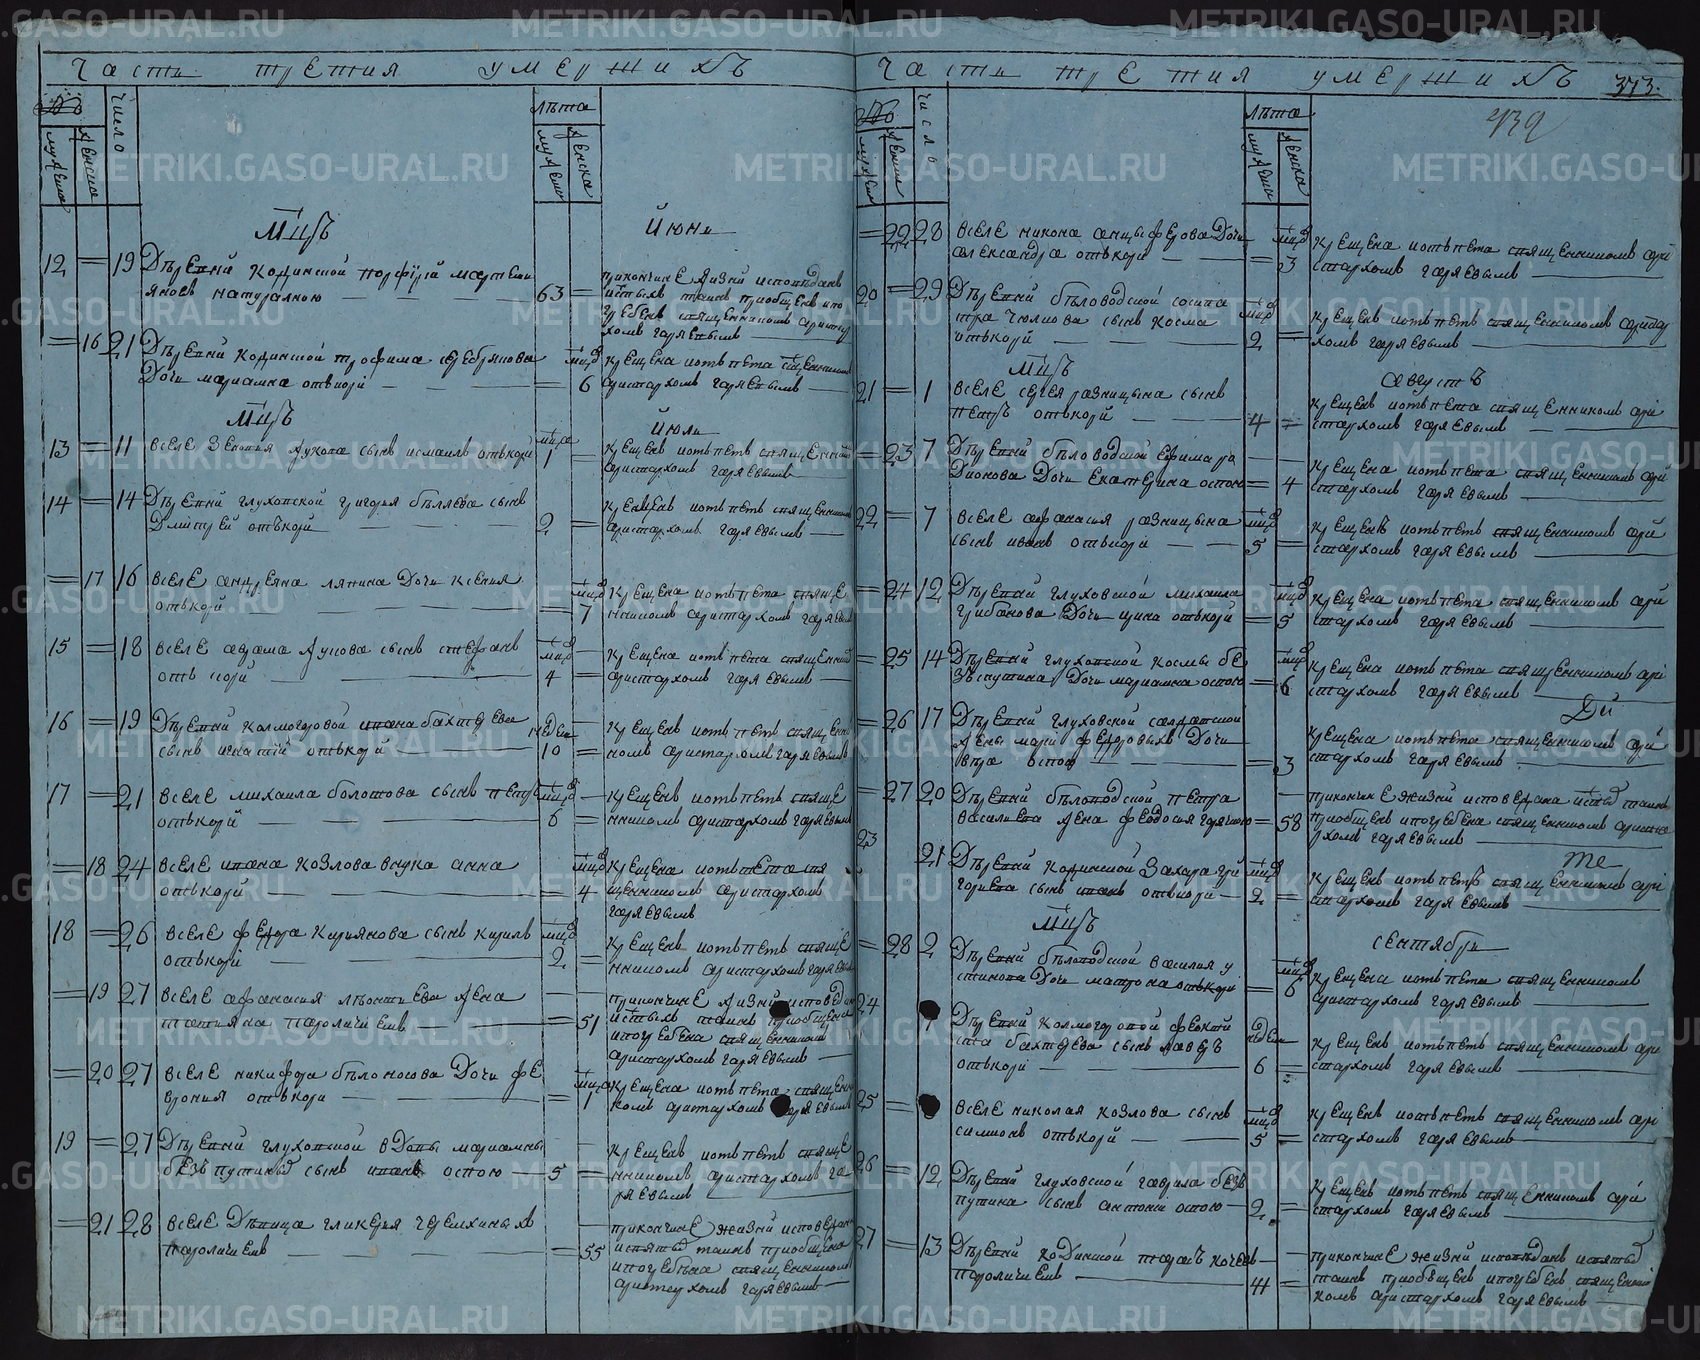 Часть третия умершихъ
№
мужеска
женска
число
лѣта
мужеска
женска
Мцъ Июнь
12 = 19 Дѣревни Кодинской порфирiй мартеми
яновъ натуралною
63 =
приконч. жизни исповѣданъ
хомъ гаряевымъ
= 16 21 Дѣревни Кодинской трофима серебрянова
Дочь мариамна отъкори
= 6
крещена иотъпета священникомъ
аристархомъ гаряевымъ
Мцъ Июль
13 = 11 вселе Зенония жукова сынъ исмаилъ отъкори
1 =
крещенъ иотъпетъ священникомъ
аристархомъ гаряевымъ
14 = 14 Дѣревни глуховской григорья бѣляева сынъ
Дмитрей отъкори
2 =
крещенъ иотъпетъ священникомъ
аристархомъ гаряевымъ
= 17 16 вселе андреяна лянина Дочь ксения
отъкори
= 7
крещена иотъпета священ
никомъ аристархомъ гаряевымъ
15 = 18 вселе адама жукова сынъ стефанъ
отъкори
4 =
крещена иотъпета священник
аристархомъ гаряевымъ
16 = 19 Дѣревни Колмогоровой ивана бахтѣева
сынъ игнатiй отъкори
10 =
крещенъ иотъпетъ священ
комъ аристархомъ гаряевымъ
17 = 21 вселе михаила болотова сынъ петръ
отъкори
6 =
крещенъ иотъпетъ священ
никомъ аристархомъ гаряевымъ
= 18 24 вселе ивана козлова внука анна
отъкори
= 4
крещена иотъпета свя
щенникомъ аристархомъ
гаряевымъ
18 = 26 вселе федора кириянова сынъ кирилъ
отъкори
2 =
крещенъ иотъпетъ священ
никомъ аристархомъ гаряевымъ
= 19 27 вселе афанасия лѣонтиева жена
татияна параличемъ
= 51
приконч. жизни исповѣдана
истыхъ таинъ приобщена
ипогребена священникомъ
аристархомъ гаряевымъ
= 20 27 вселе никифора бѣлоносова Дочь фе
врония отъкори
= 1
крещена иотъпета священни
комъ аристархомъ гаряевымъ
19 = 27 Дѣревни глуховской вдовы мариамны
безъпутиныхъ сынъ иванъ оспою
5 =
крещенъ иотъпетъ священ
никомъ аристархомъ га
ряевымъ
= 21 28 вселе Дѣвица гликерия черемхиныхъ
параличемъ
= 55
приконч. жизни исповедана
исвятых таинъ приобщена
ипогребена священникомъ
аристархомъ гаряевымъ
Часть третия умершихъ 373.
№
мужеска
женска
число
лѣта
мужеска
женска
= 22 28 вселе никона анцыферова Дочь
александра отъкори
= 3
крещена иотъпета священникомъ ари
стархомъ гаряевымъ
20 = 29 Дѣревни бѣловодской сосипа
тра сынъ косма
отъкори
2 =
крещенъ иотъпетъ священникомъ аристар
хомъ гаряевымъ
Мцъ августъ
21 = 1 вселе сергея разницына сынъ
петръ отъкори
4 =
крещенъ иотъпета священникомъ ари
стархомъ гаряевымъ
= 23 7 Дѣревни бѣловодской ефима ро
Дионова Дочь екатерина оспою
= 4
крещена иотъпета священникомъ ари
стархомъ гаряевымъ
22 = 7 вселе афанасия разницына
сынъ иванъ отъкори
5 =
крещенъ иотъпетъ священникомъ ари
стархомъ гаряевымъ
= 24 12 Дѣревни глуховской михаила
грибанова Дочь ирина отъкори
= 5
крещена иотъпета священникомъ ари
стархомъ гаряевымъ
= 25 14 Дѣревни глуховской космы бе
зъпутина Дочь мариамна оспою
= 6
крещена иотъпета священникомъ ари
стархомъ гаряевымъ
Дй
= 26 17 Дѣревни глуховской салдатской
жены марiи федоровыхъ Дочь
вѣра оспою
= 3
крещена иотъпета священникомъ ари
стархомъ гаряевымъ
= 27 20 Дѣревни бѣловодской петра
василиева жена феодосия горячкою
= 58
приконч. жизни исповедана истыхъ таинъ
приобщена ипогребена священникомъ ариста
рхомъ гаряевымъ
те
23 21 Дѣревни кодинской Захара гри
гориева сынъ иванъ отъкори
2 =
крещенъ иотъпетъ священникомъ ари
стархомъ гаряевымъ
Мцъ сентябрь
= 28 2 Дѣревни бѣловодской василия у
стинова Дочь матрона отъкори
= 6
крещена иотъпета священникомъ
аристархомъ гаряевымъ
24 = Дѣревни Колмогоровой феокти
ста бахтѣева сынъ
отъкори
6 =
крещенъ иотъпетъ священникомъ ари
стархомъ гаряевымъ
25 = вселе николая козлова сынъ
симионъ отъкори
5 =
крещенъ иотъпетъ священникомъ ари
стархомъ гаряевымъ
26 = 12 Дѣревни глуховской гаврила безъ
путина сынъ антонiй оспою
2 =
крещенъ иотъпетъ священникомъ ари
стархомъ гаряевымъ
27 = 13 Дѣревни кодинской
параличемъ
приконч. жизни исповѣданъ исвятыхъ
таинъ приобщенъ ипогребенъ священни
комъ аристархомъ гаряевымъ
METRIKI.GASO-URAL.RU